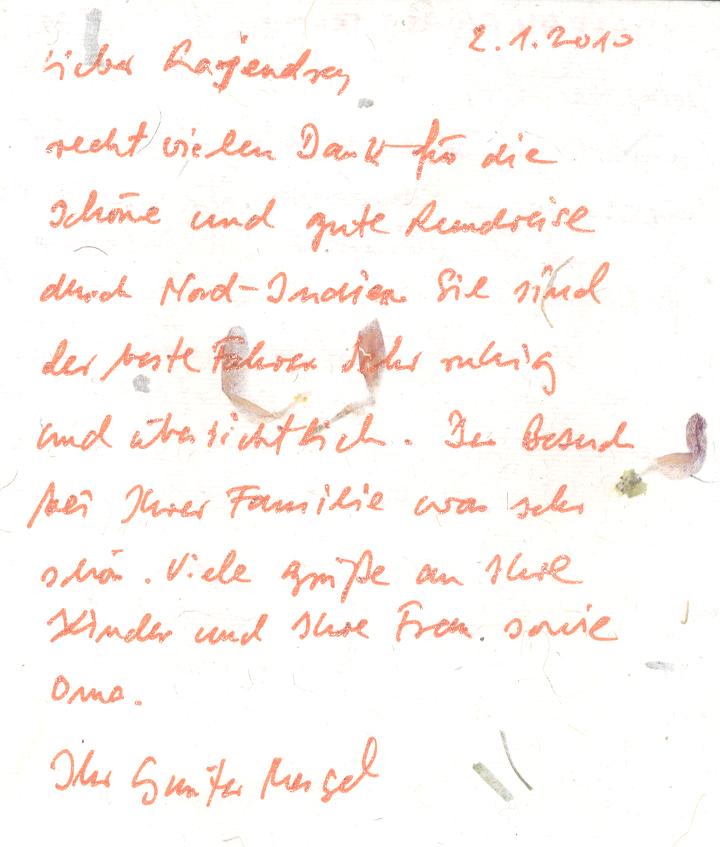 2.1.2010
Lieber Rajendra,
recht vielen Dank für die
schöne und gute Rundreise
durch Nord-Indien. Sie sind
der beste Fahrer. Sehr ruhig
und übersichtlich. Der Besuch
bei Ihrer Familie war sehr
schön. Viele Grüße an Ihre
Kinder und Ihre Frau sowie
Oma.
Ihr Günter